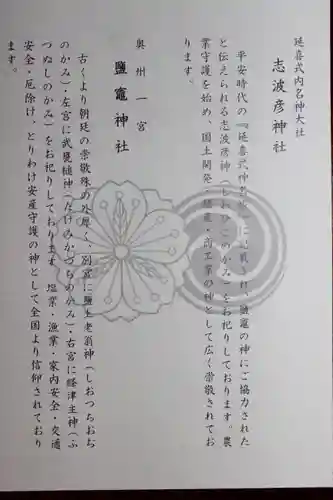 延喜式内名神大社
志波彦神社
平安時代の『延喜式神名帳』に記載され、鹽竈の神にご協力された
と伝えられる志波彦神（しわひこのかみ）をお祀りしております。農
業守護を始め、国土開発・殖産・商工業の神として広く崇敬されてお
ります。
奥州一宮
鹽竈神社
古くより朝廷の崇敬殊の外厚く、別宮に鹽土老翁神（しおつちおぢ
のかみ）・左宮に武甕槌神（たけみかづちのかみ）・右宮に経津主神（ふ
つぬしのかみ）をお祀りしております。塩業・漁業・家内安全・交通
安全・厄除け、とりわけ安産守護の神として全国より信仰されており
ます。